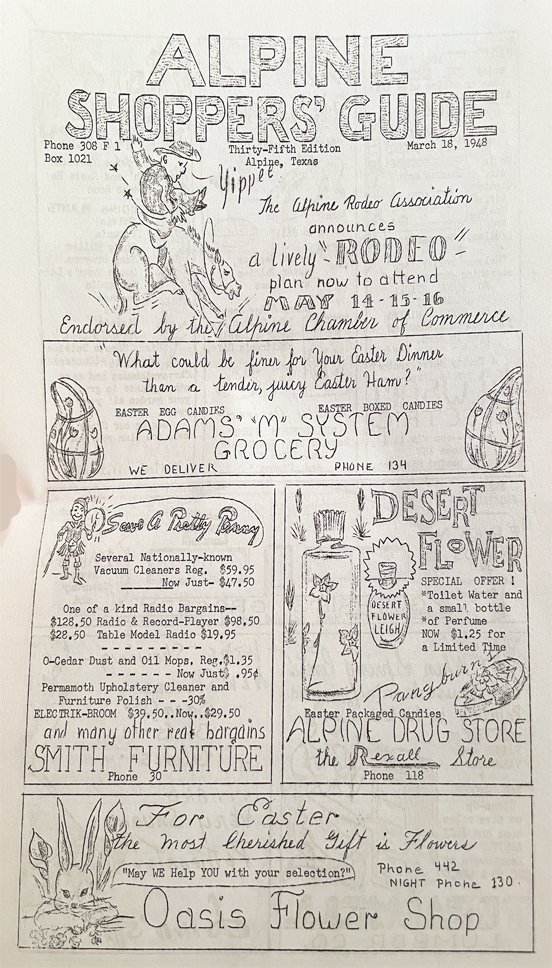 ALPINE
SHOPPERS' GUIDE
Phone 308 F 1
Box 1021
Thirty-Fifth Edition
Alpine, Texas
March 18, 1948
Yippee
The Alpine Rodeo Association
announces
a lively "RODEO"
plan now to attend
MAY 14-15-16
Endorsed by the Alpine Chamber of Commerce
"What could be finer for Your Easter Dinner
than a tender, juicy Easter Ham?"
EASTER EGG CANDIES EASTER BOXED CANDIES
ADAMS' "M" SYSTEM
GROCERY
WE DELIVER PHONE 134
Save A Pretty Penny
Several Nationally-known
Vacuum Cleaners Reg. $59.95
Now Just- $47.50
One of a kind Radio Bargains--
$128.50 Radio & Record-Player $98.50
$28.50 Table Model Radio $19.95
- - - - - - - - - -
O-Cedar Dust and Oil Mops, Reg.$1.35
- - - - - - - Now Just$ .95¢
Permamoth Upholstery Cleaner and
Furniture Polish - - -30%
ELECTRIK-BROOM $39.50..Now..$29.50
and many other real bargains
SMITH FURNITURE
Phone 30
DESERT
FLOWER
SPECIAL OFFER !
*Toilet Water and
a small bottle
*of Perfume
NOW $1.25 for
a Limited Time
DESERT
FLOWER
LEIGH
Pangburn
Easter Packaged Candies
ALPINE DRUG STORE
the Rexall Store
Phone 118
For Easter
the most Cherished Gift is Flowers
"May WE Help YOU with your selection?"
Phone 442
NIGHT Phone 130.
Oasis Flower Shop